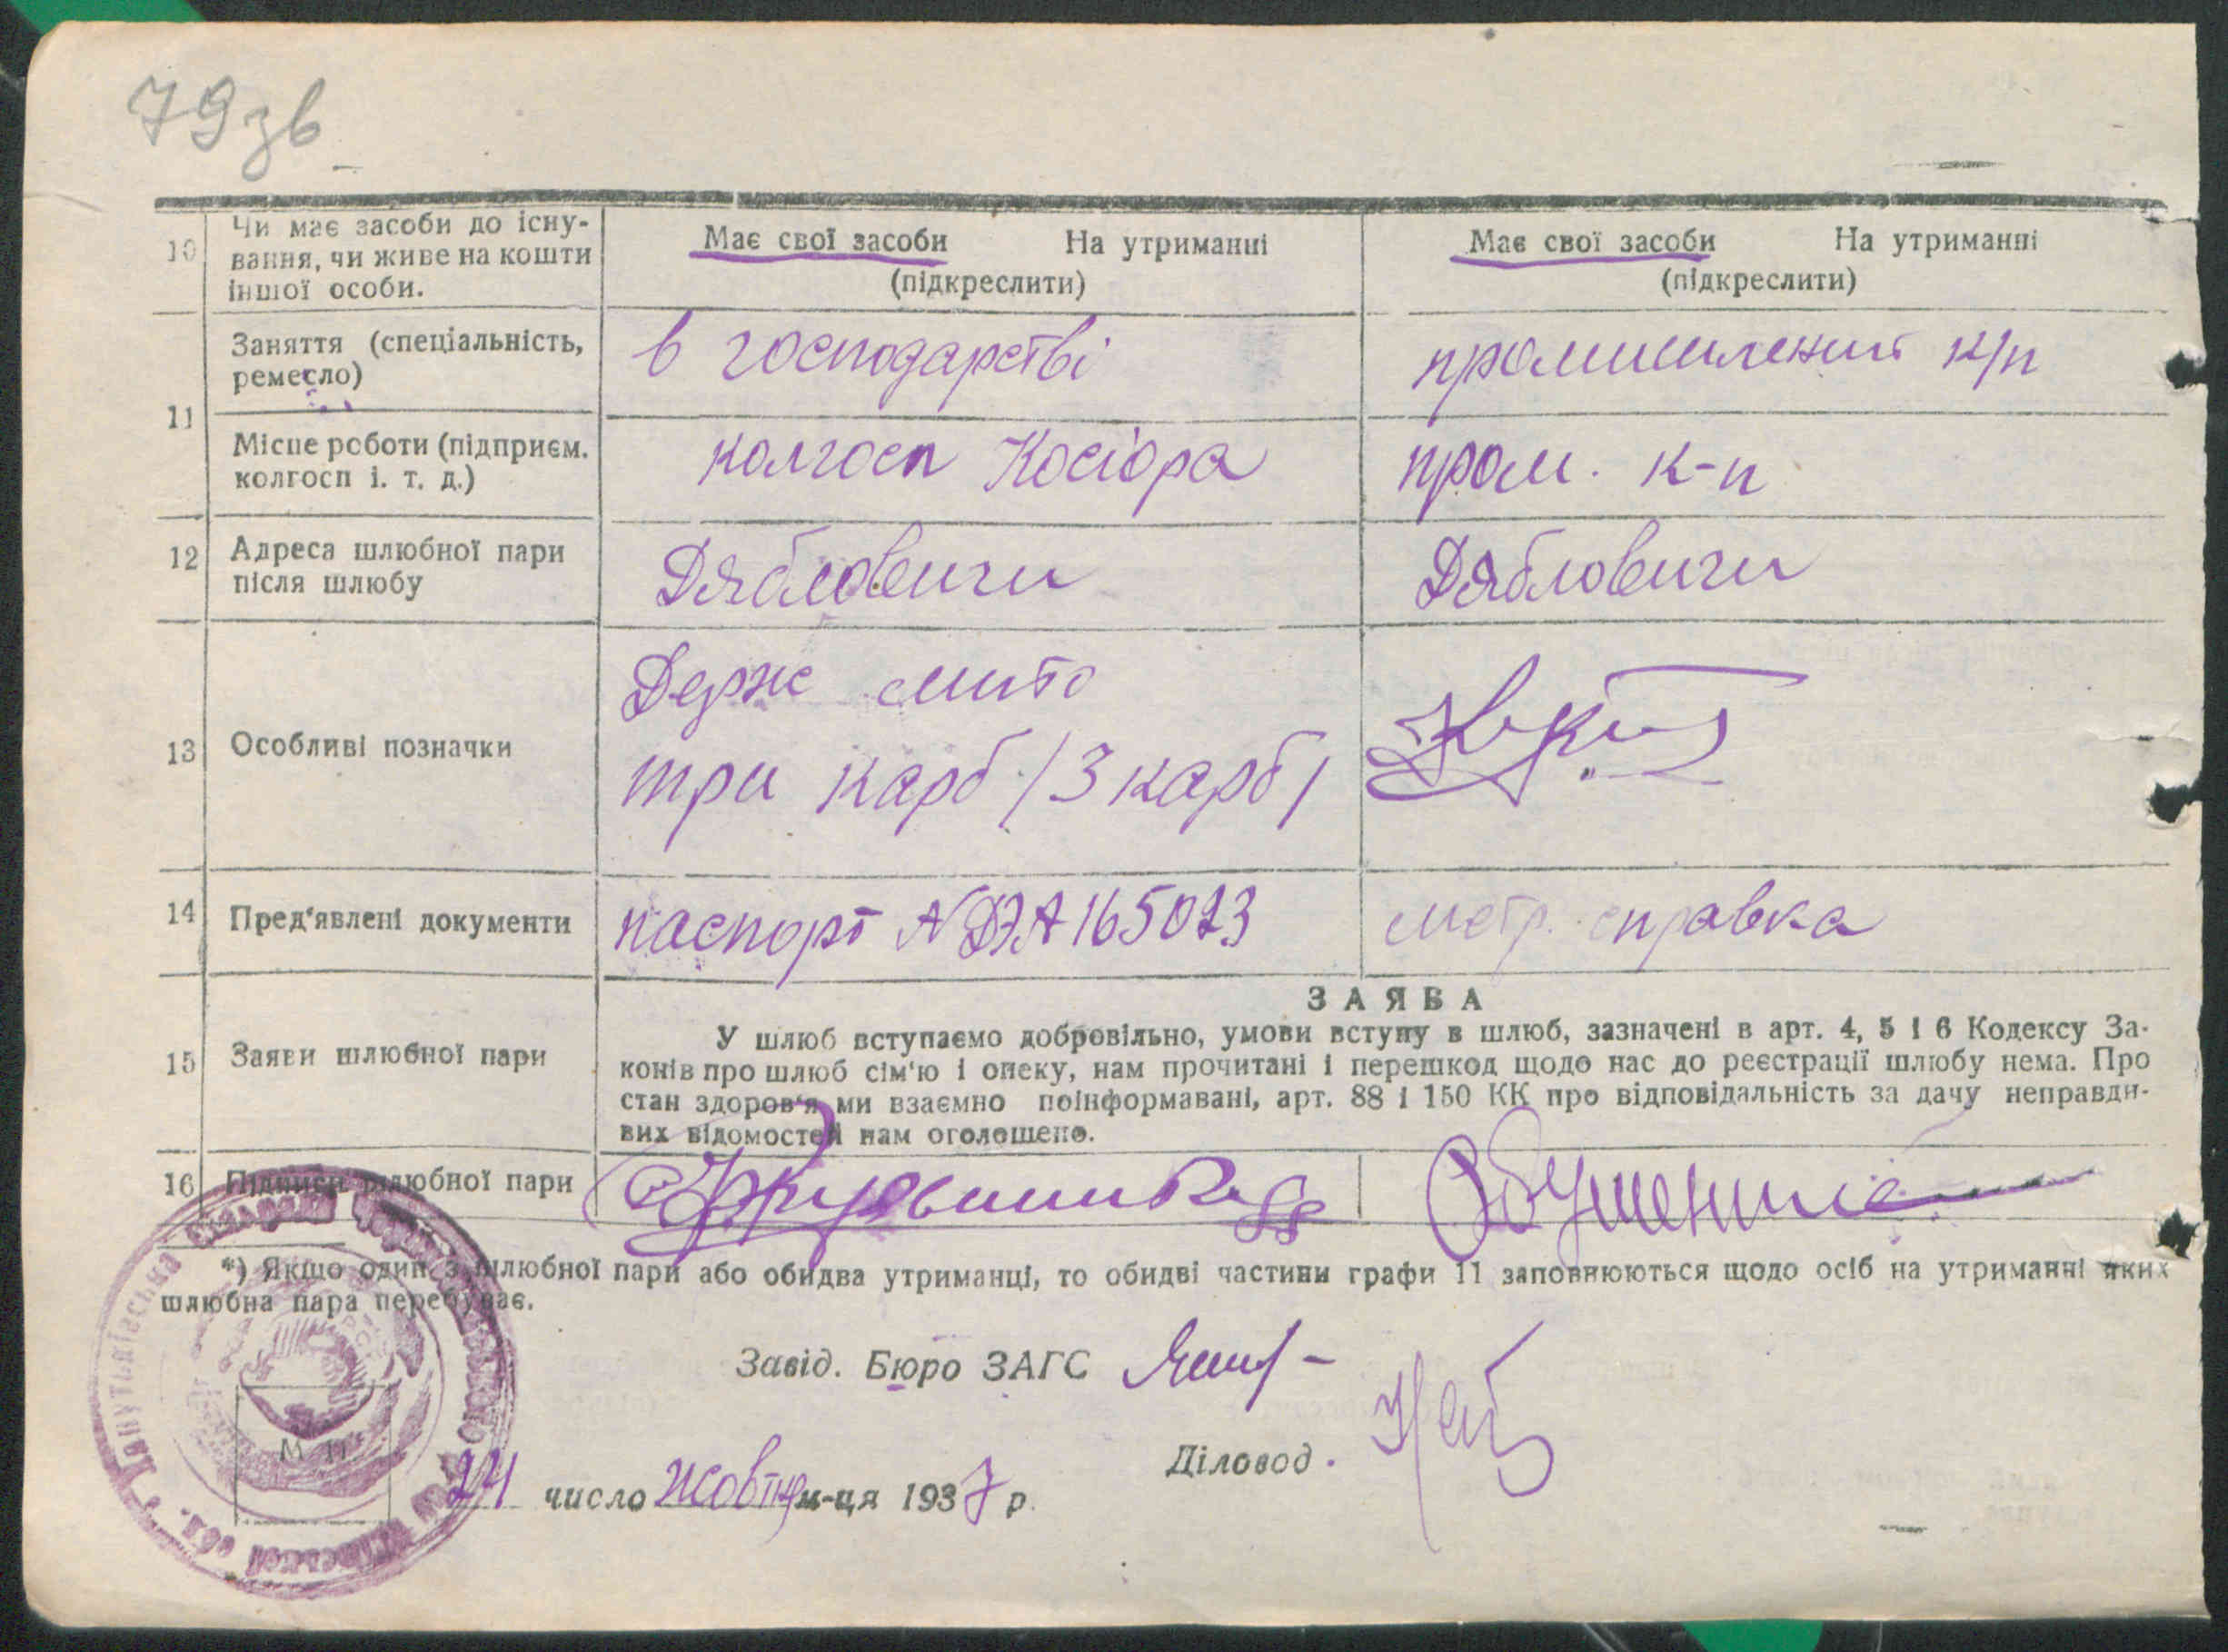 79зв
10 Чи має засоби до існу-
вання, чи живе на кошти
іншої особи.
Має свої засоби На утриманні
(підкреслити)
Має свої засоби На утриманні
(підкреслити)
11 Заняття (спеціальність,
ремесло)
в господарстві
промишлений к/п
Місце роботи (підприєм.
колгосп і. т. д.)
колгосп Косіора
пром. к-п
12 Адреса шлюбної пари
після шлюбу
Дябловичи
Дябловичи
13 Особливі позначки
Держ мито
три карб /3 карб/
14 Пред'явлені документи
паспорт N ДЭА 165023
метр. справка
15 Заяви шлюбної пари
ЗАЯВА
У шлюб вступаємо добровільно, умови вступу в шлюб, зазначені в арт. 4, 5 і 6 Кодексу За-
конів про шлюб сім'ю і опеку, нам прочитані і перешкод щодо нас до реєстрації шлюбу нема. Про
стан здоров'я ми взаємно поінформавані, арт. 88 і 150 КК про відповідальність за дачу неправди-
вих відомостей нам оголошено.
16 Підписи шлюбної пари
*) Якщо один з шлюбної пари або обидва утриманці, то обидві частини графи 11 заповнюються щодо осіб на утриманні яких
шлюбна пара перебуває.
Завід. Бюро ЗАГС
Діловод.
М П
24 число жовтня м-ця 1937 р.